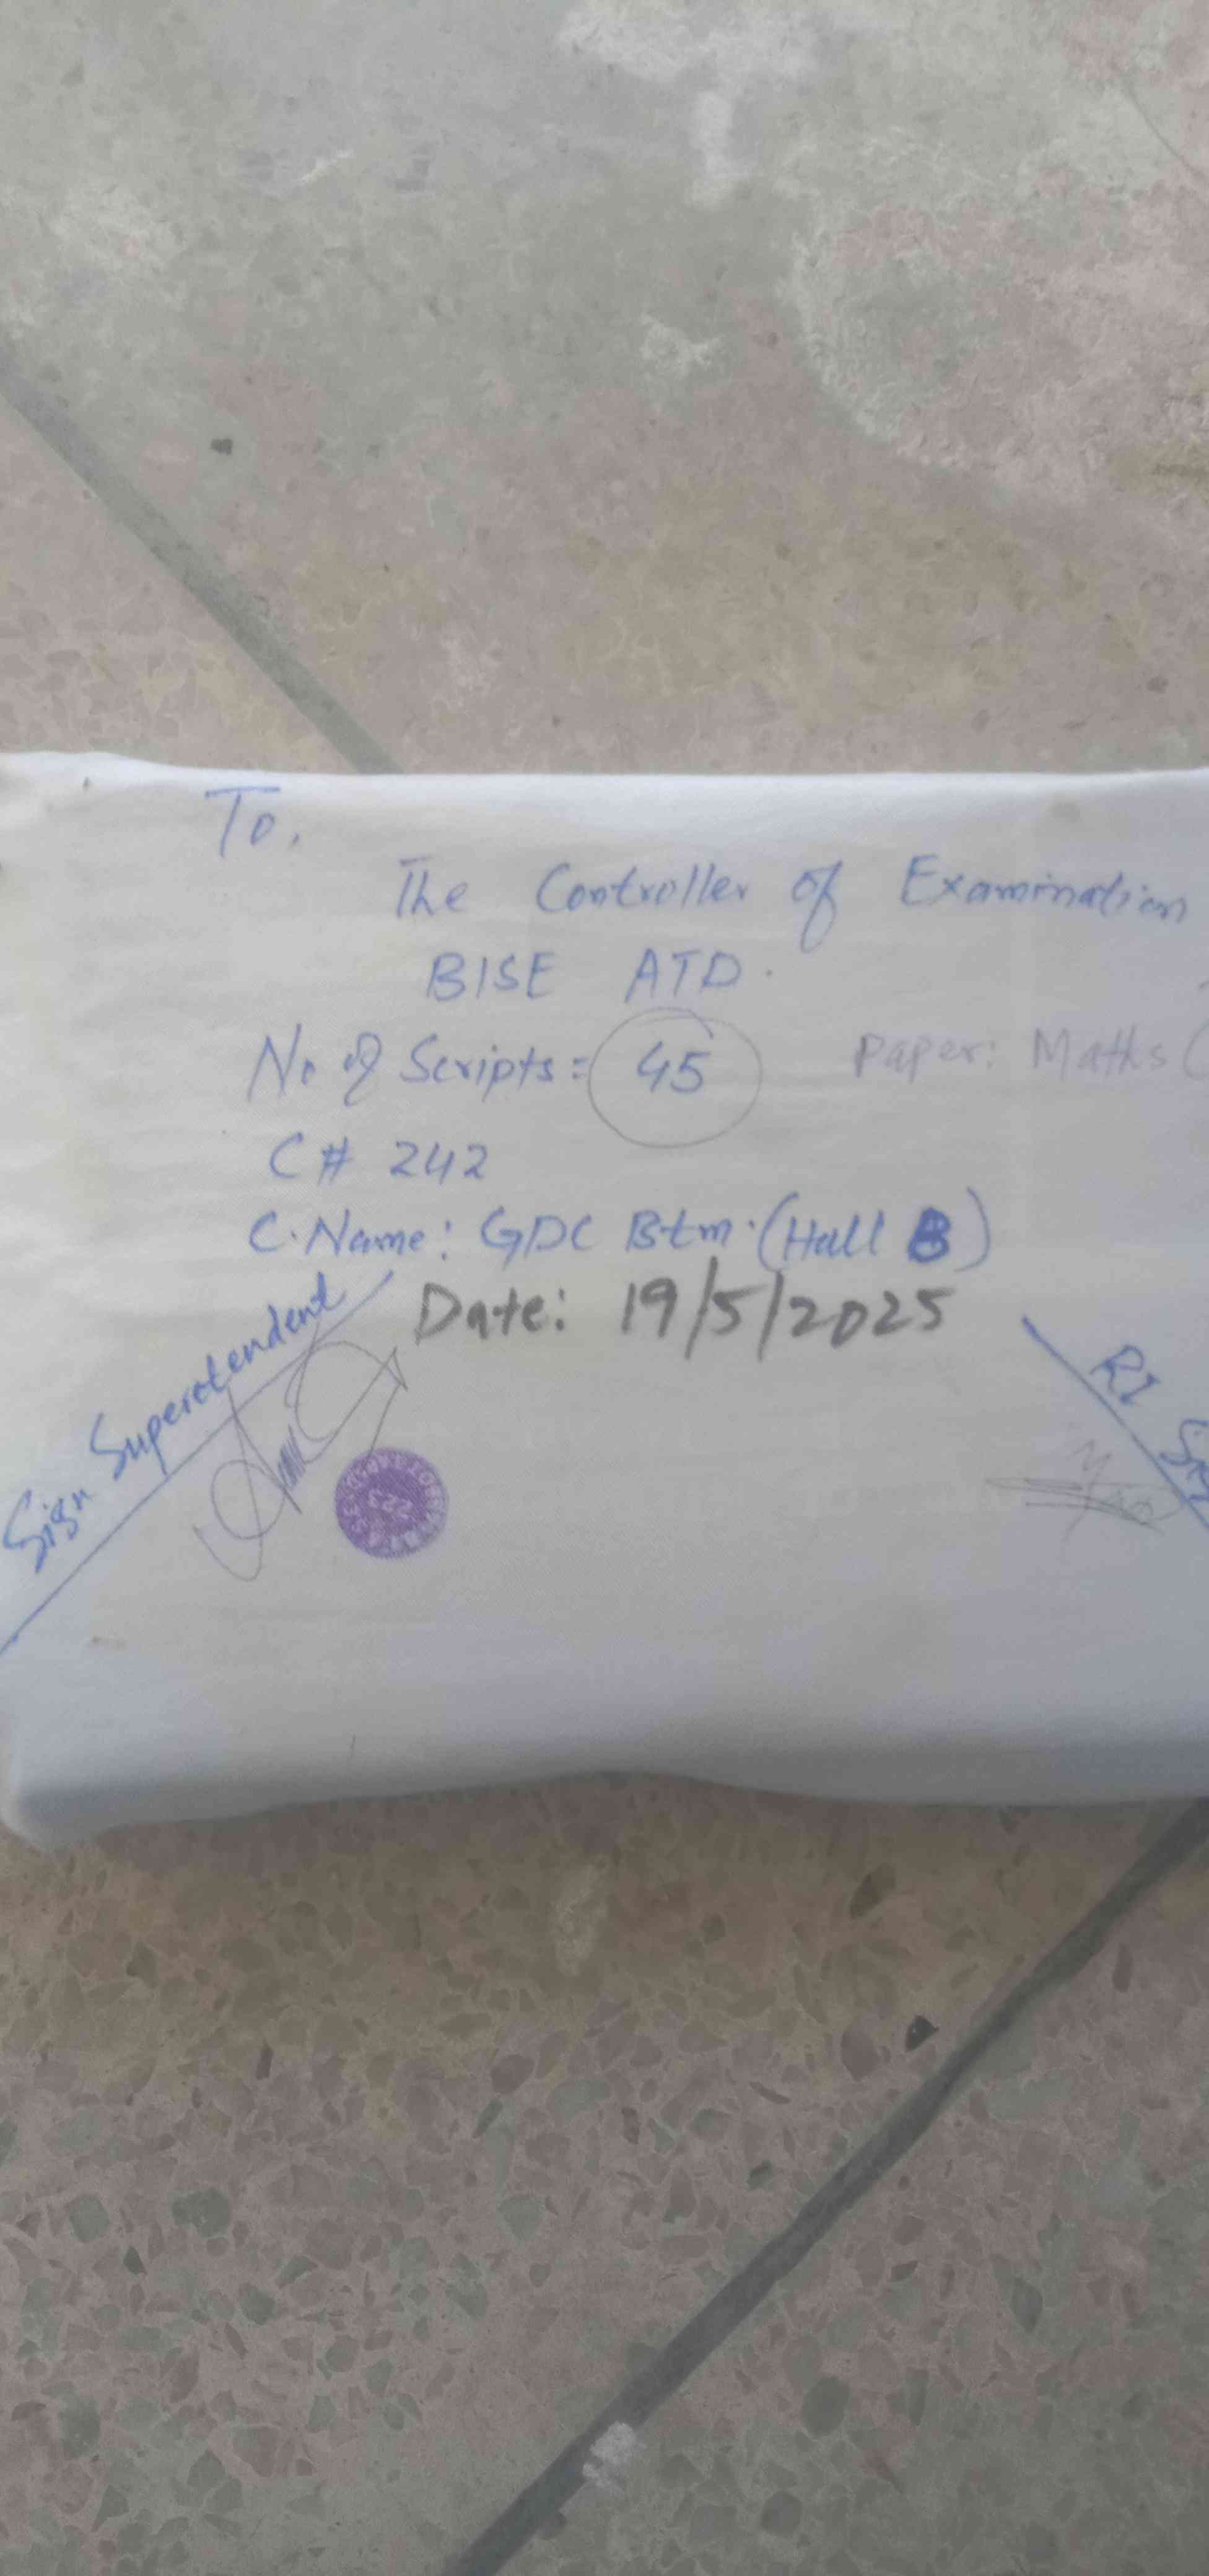 To,
The Controller of Examination
BISE ATD.
No of Scripts = 45 Paper: Maths (
C# 242
C.Name: GDC Btm.(Hall B)
Date: 19/5/2025
Sign Superetendent
RI